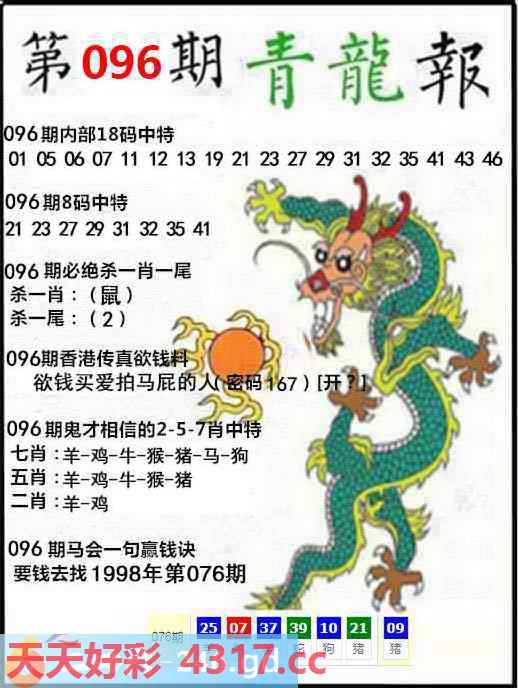 第096期 青龍報
096期内部18码中特
01 05 06 07 11 12 13 19 21 23 27 29 31 32 35 41 43 46
096期8码中特
21 23 27 29 31 32 35 41
096期必绝杀一肖一尾
杀一肖：(鼠)
杀一尾：(2)
096期香港传真欲钱料
欲钱买爱拍马屁的人(密码167)[开?]
096期鬼才相信的2-5-7肖中特
七肖：羊-鸡-牛-猴-猪-马-狗
五肖：羊-鸡-牛-猴-猪
二肖：羊-鸡
096期马会一句赢钱诀
要钱去找1998年第076期
076期 25 07 37 39 10 21 09
狗 猪 猪
天天好彩 4317.cc